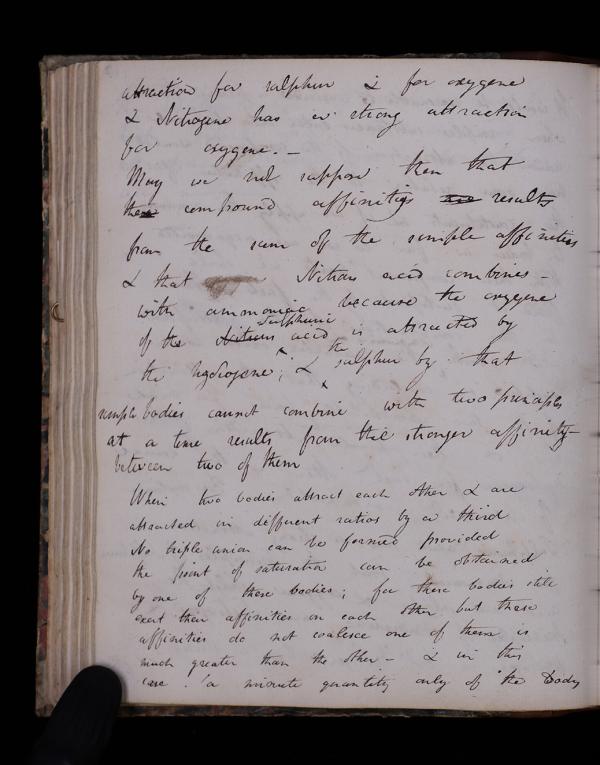 attraction for sulphur & for oxygene
& Nitrogene has a strong attraction
for oxygene. –
May we not suppose then that
these compound affinities are results
from the sum of the simple affinities
& that Nitrous acid combines –
with ammoniac because the oxygene
of the Nitrous sulphuric acid is attracted by
the hydrogene; & the sulphur by that
simple bodies cannot combine with two principles
at a time results from the stronger affinity
between two of them
When two bodies attract each other & are
attracted in different ratios by a third
No triple union can be formed provided
the point of saturation can be obtained
by one of these bodies; for these bodies still
exert their affinities on each other but these
affinities do not coalesce one of them is
much greater than the other – & in this
case . a minute quantity only of the body